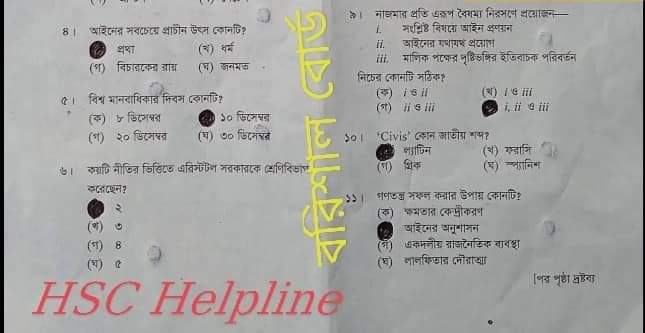 ৪। আইনের সবচেয়ে প্রাচীন উৎস কোনটি?
প্রথা (খ) ধর্ম
(গ) বিচারকের রায় (ঘ) জনমত
৫। বিশ্ব মানবাধিকার দিবস কোনটি?
(ক) ৮ ডিসেম্বর ১০ ডিসেম্বর
(গ) ২০ ডিসেম্বর (ঘ) ৩০ ডিসেম্বর
৬। কয়টি নীতির ভিত্তিতে এরিস্টটল সরকারকে শ্রেণিবিভাগ
করেছেন?
২
(খ) ৩
(গ) ৪
(ঘ) ৫
বরিশাল বোর্ড
৯। নাজমার প্রতি এরূপ বৈষম্য নিরসণে প্রয়োজন—
i. সংশ্লিষ্ট বিষয়ে আইন প্রণয়ন
ii. আইনের যথাযথ প্রয়োগ
iii. মালিক পক্ষের দৃষ্টিভঙ্গির ইতিবাচক পরিবর্তন
নিচের কোনটি সঠিক?
(ক) i ও ii (খ) i ও iii
(গ) ii ও iii i, ii ও iii
১০। ‘Civis’ কোন জাতীয় শব্দ?
ল্যাটিন (খ) ফরাসি
(গ) গ্রিক (ঘ) স্প্যানিশ
১১। গণতন্ত্র সফল করার উপায় কোনটি?
(ক) ক্ষমতার কেন্দ্রীকরণ
আইনের অনুশাসন
(গ) একদলীয় রাজনৈতিক ব্যবস্থা
(ঘ) লালফিতার দৌরাত্ম্য
[পর পৃষ্ঠা দ্রষ্টব্য
HSC Helpline